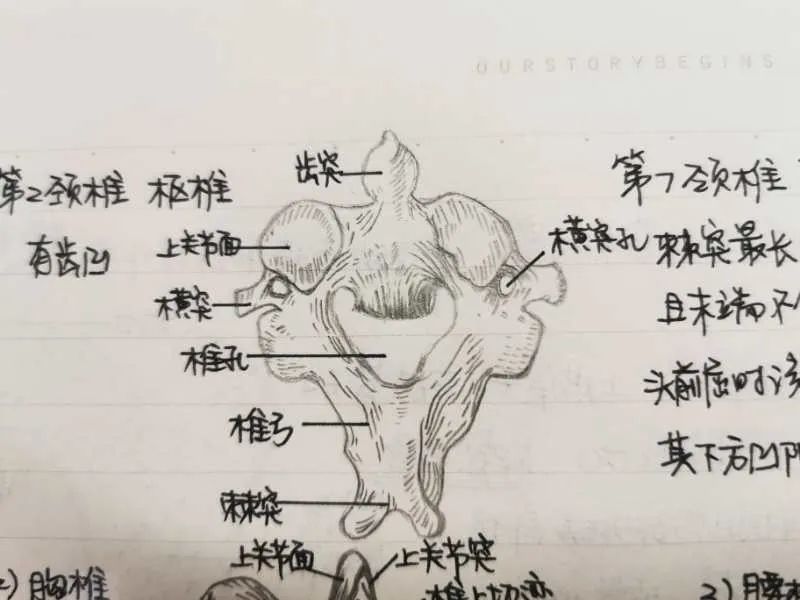 OURSTORYBEGINS
第2颈椎 枢椎
有齿凹
齿突
上关节面
横突
椎孔
椎弓
棘突
横突孔
第7颈椎
棘突最长
且末端不
头前屈时该
其下方凹陷
胸椎
上关节面
上关节突
椎上切迹
3)腰椎